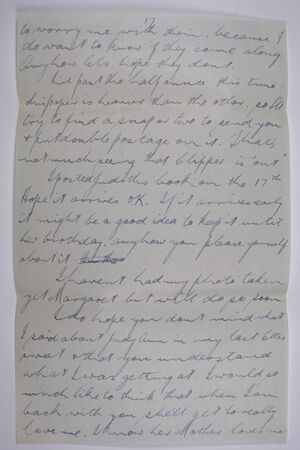 to worry me with them. because I
do want to know if they come along.
Anyhow lets hope they dont.
I've past the half ounce this time -
this paper is heavier than the other. so Ill
try to find a snap or two to send you
& put double postage on it. Thats
not much seeing that Clipper is "out"
I posted Judiths book on the 17th
Hope it arrives OK. If it arrives early
it might be a good idea to keep it until
her birthday. anyhow you please yourself
about it
I haven't had my photo taken
yet Margaret but will do so soon
I do hope you don't mind what
I said about Judy Ann in my last letter
sweet & that you understand
what I was getting at. I would so
much like to think that when I am
back with you she'll get to really
love me. I know her Mother loves me